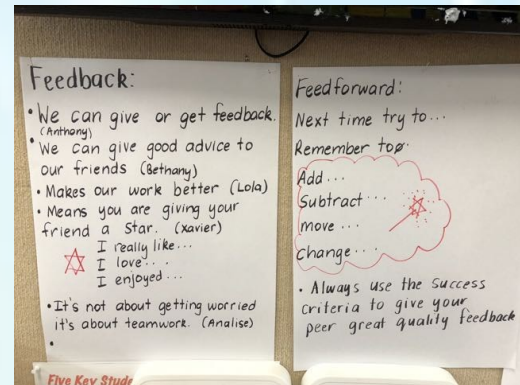 Feedback:
• We can give or get feedback.
(Anthony)
• We can give good advice to
our friends (Bethany)
• Makes our work better (Lola)
• Means you are giving your
friend a star. (xavier)
I really like...
I love...
I enjoyed...
• It's not about getting worried
it's about teamwork. (Analise)
•
Five Key Stude
Feedforward:
Next time try to...
Remember to...
Add...
Subtract...
move...
change...
• Always use the success
criteria to give your
peer great quality feedback